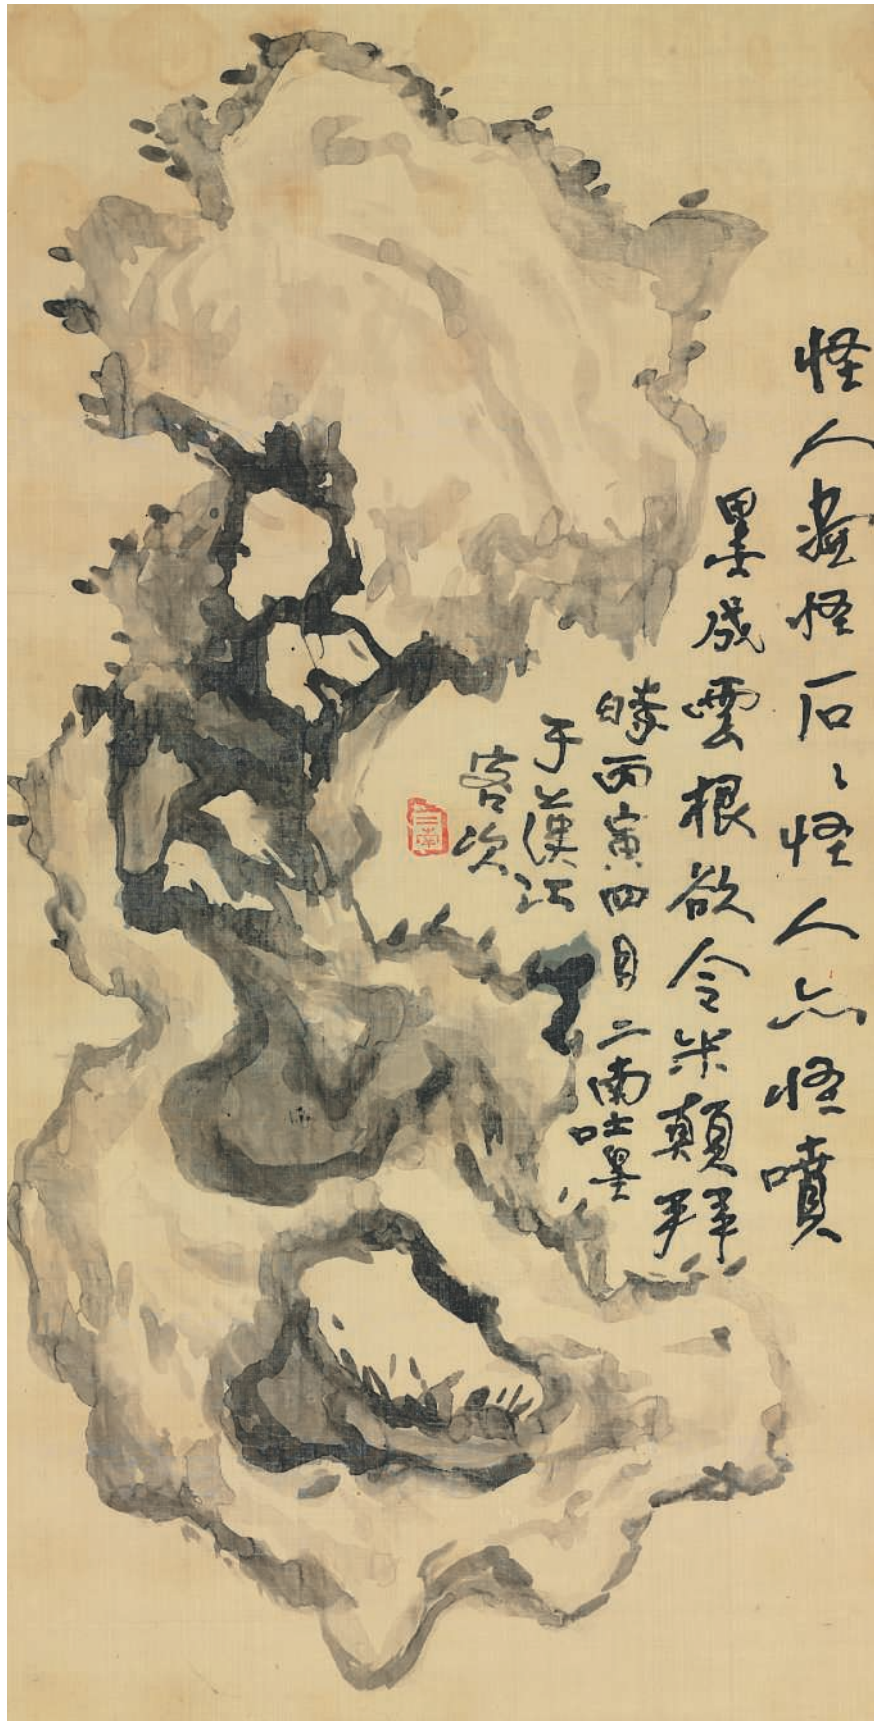 怪人畫怪石々怪人亦怪噴
墨成雲根欲令米顛拜
時丙寅四月二南吐墨
于漢江
客次
二南